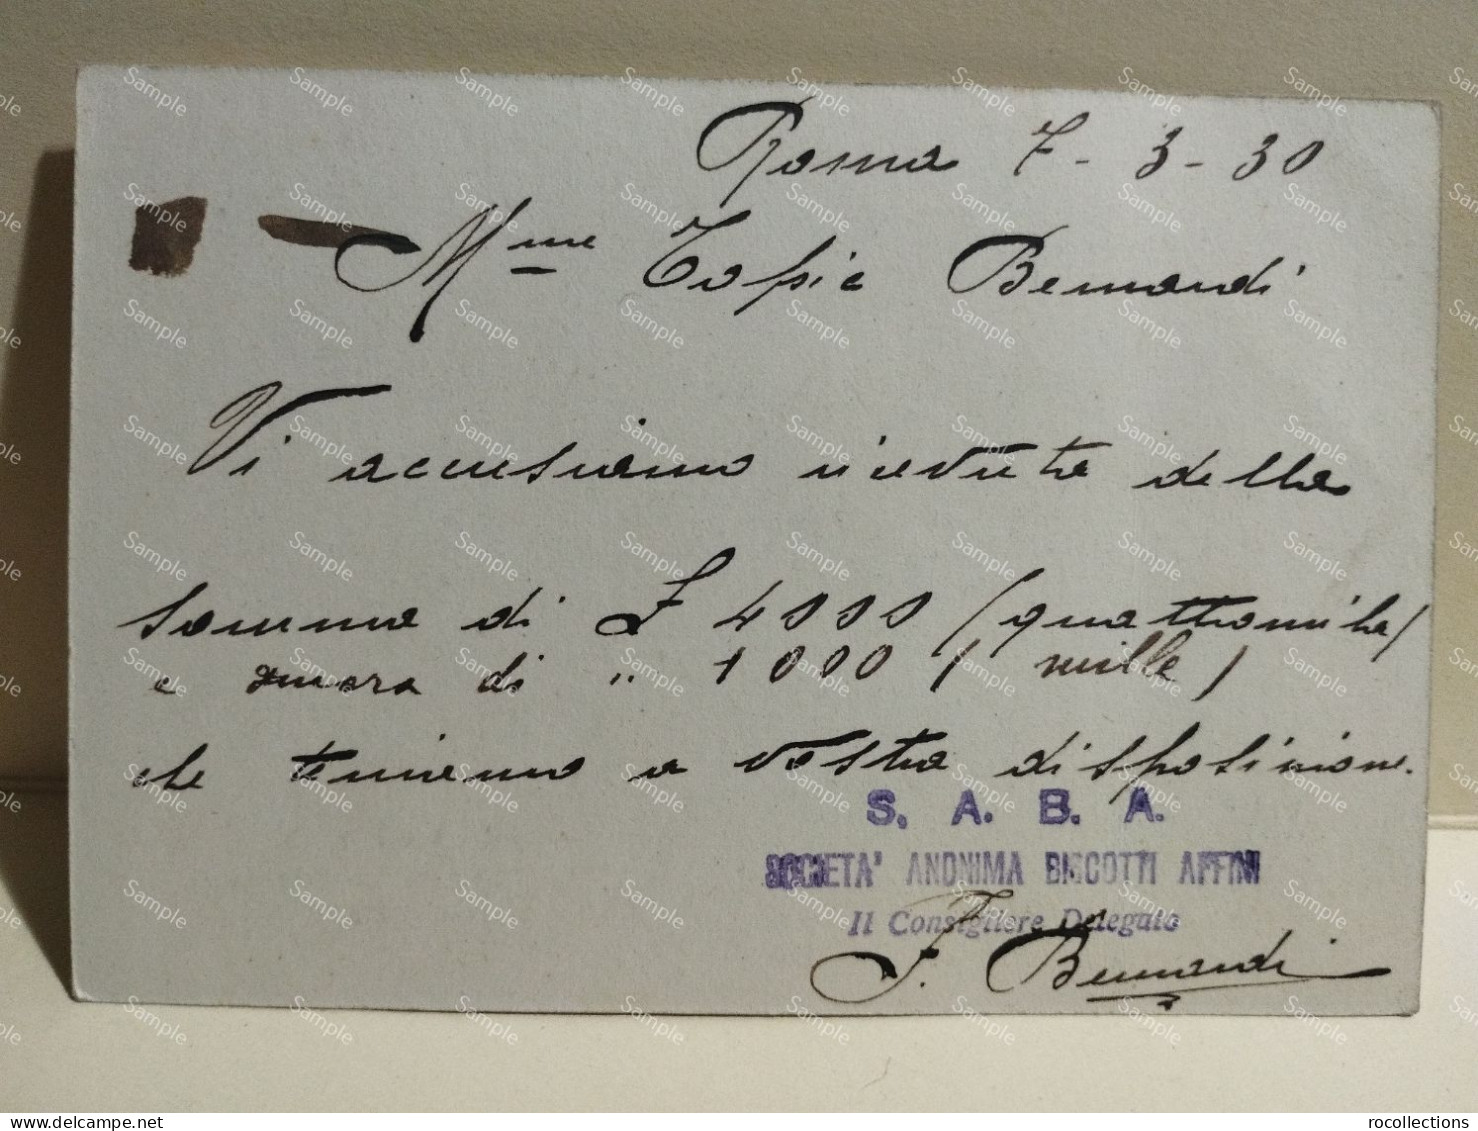 Roma 7-3-30
Mme Bernardi
Vi accusiamo ricevuta della
somma di £ 4000 (quattromila)
e ancora di " 1000 (mille)
che teniamo a vostra disposizione.
S. A. B. A.
SOCIETA' ANONIMA BISCOTTI AFFINI
Il Consigliere Delegato
F. Bernardi
rocollections